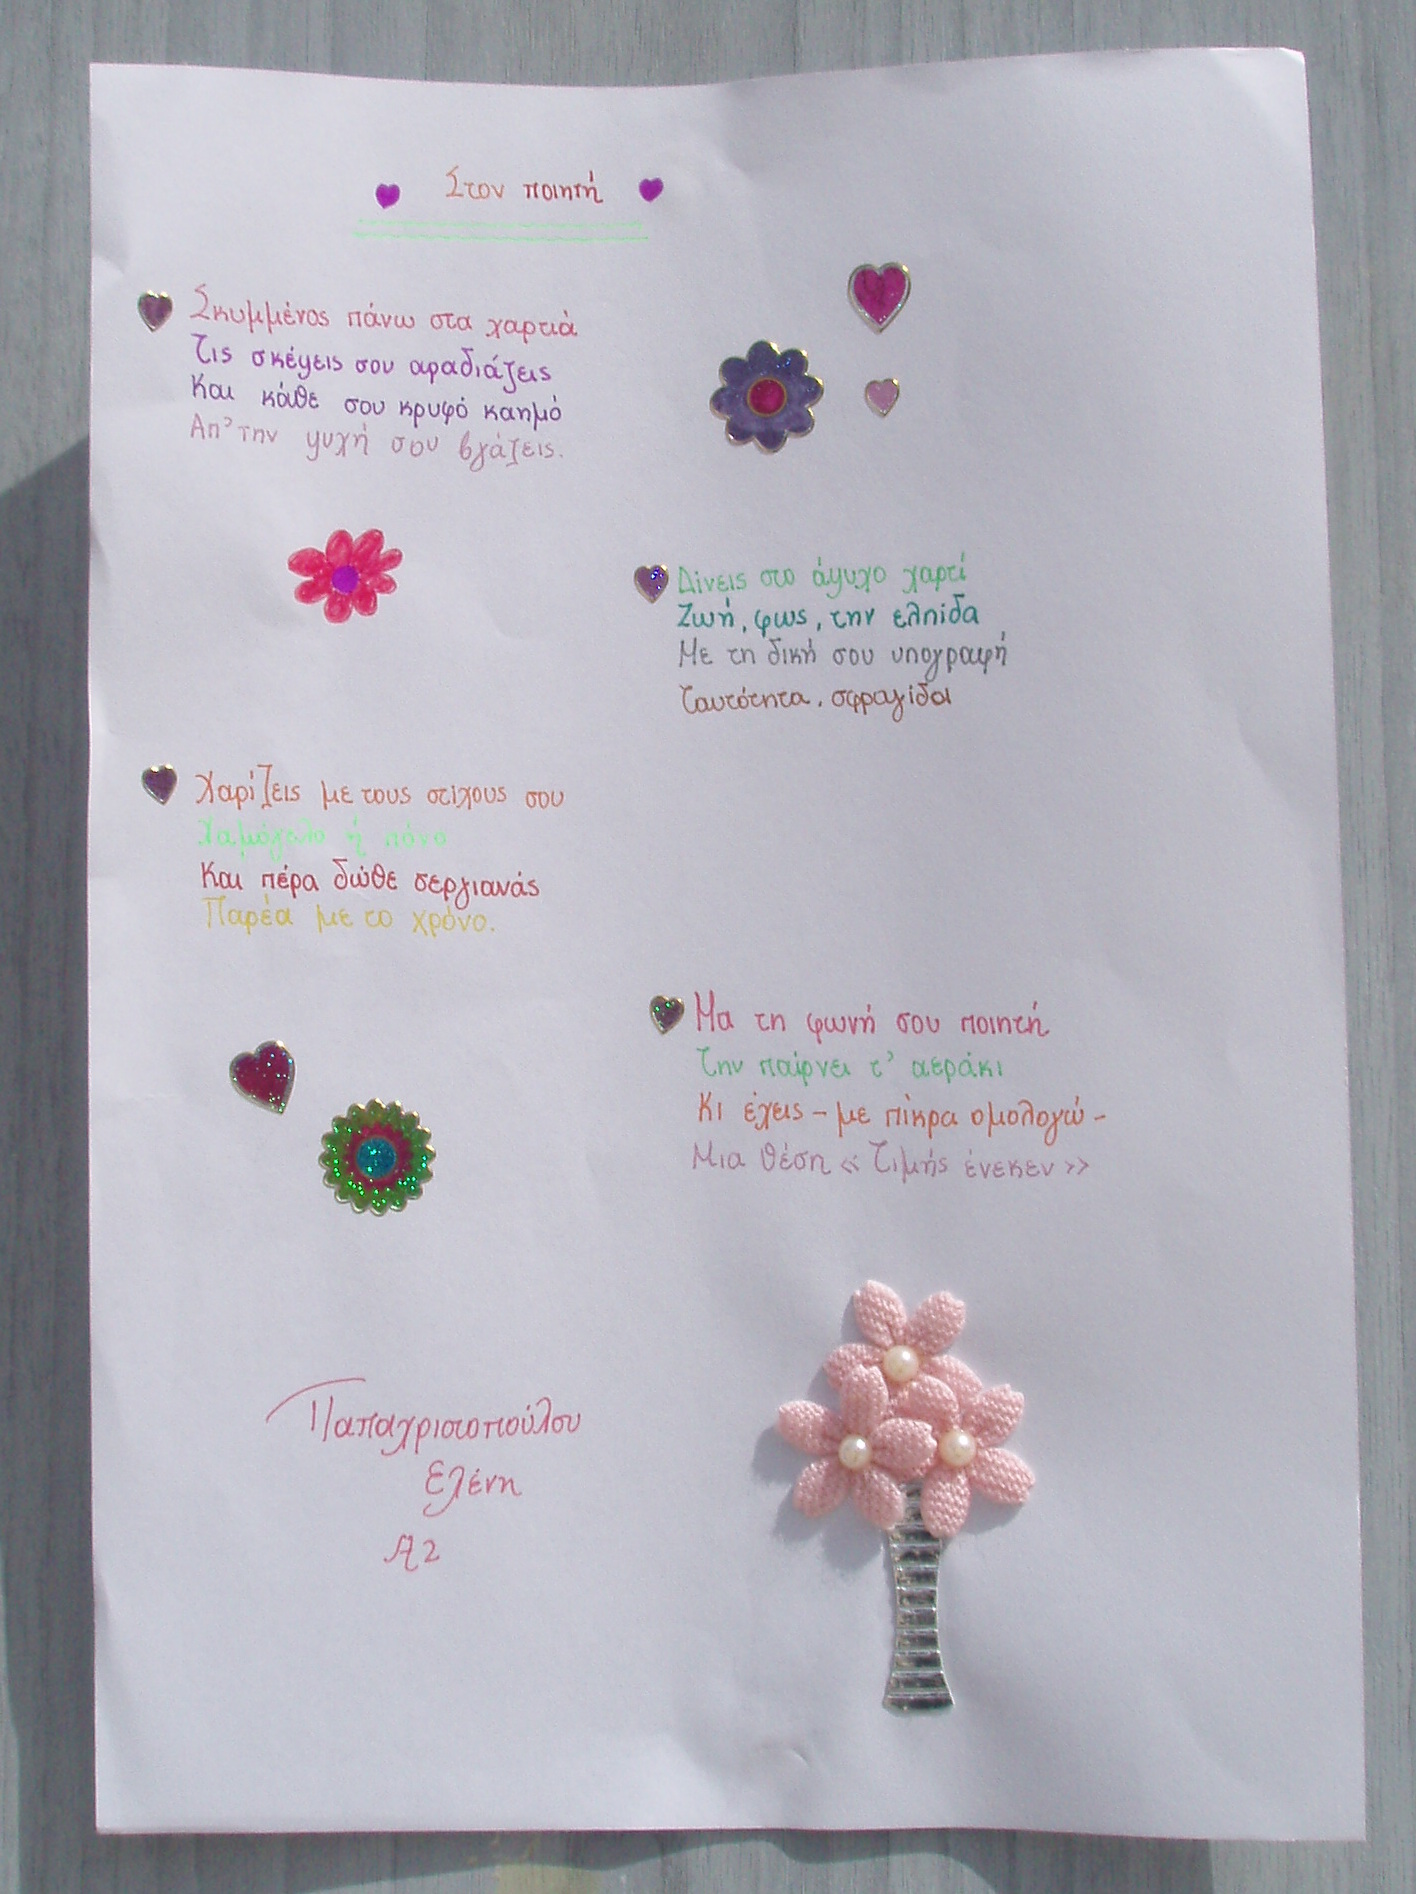 Στον ποιητή
Σκυμμένος πάνω στα χαρτιά
Τις σκέψεις σου αραδιάζεις
Και κάθε σου κρυφό καημό
Απ' την ψυχή σου βγάζεις.
Δίνεις στο άψυχο χαρτί
Ζωή, φως, την ελπίδα
Με τη δική σου υπογραφή
Ταυτότητα, σφραγίδα
Χαρίζεις με τους στίχους σου
Χαμόγελο ή πόνο
Και πέρα δώθε σεργιανάς
Παρέα με το χρόνο.
Μα τη φωνή σου ποιητή
Την παίρνει τ' αεράκι
Κι έχεις - με πίκρα ομολογώ -
Μια θέση << Τιμής ένεκεν >>
Παπαχριστοπούλου
Ελένη
Α2